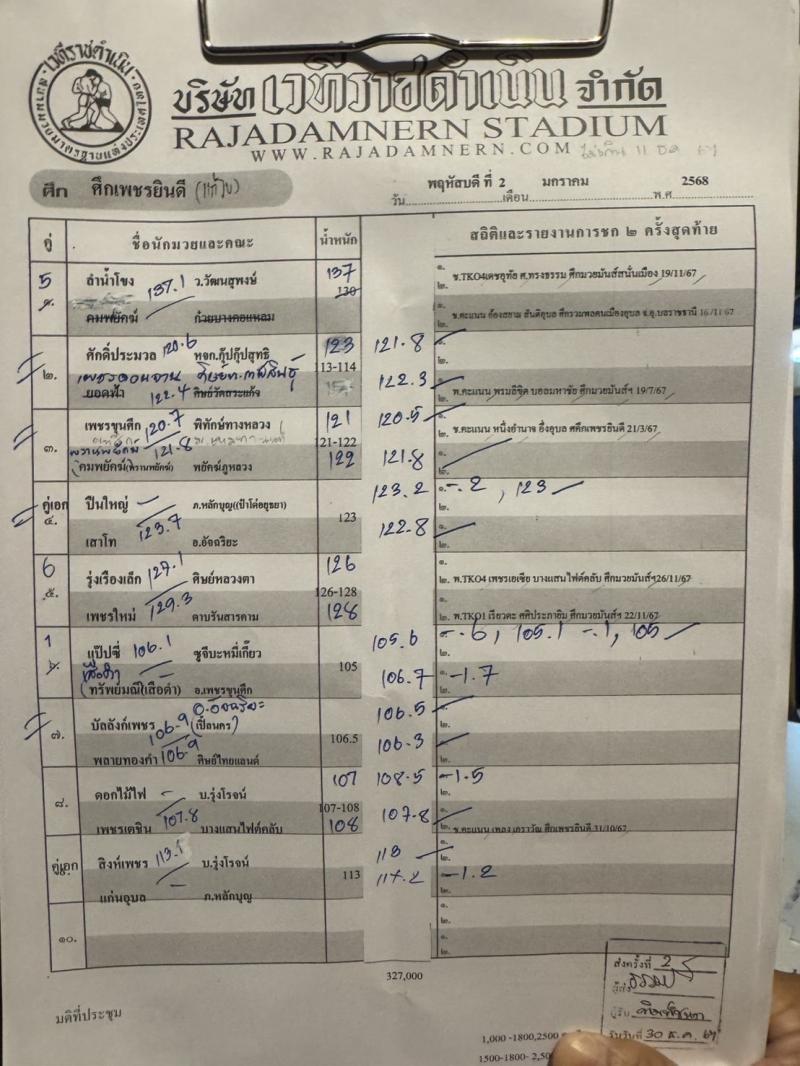 เวทีราชดำเนิน
บริษัท เวทีราชดำเนิน จำกัด
RAJADAMNERN STADIUM
WWW.RAJADAMNERN.COM
ศึก ศึกเพชรยินดี (แก้ไข)
วัน พฤหัสบดี ที่ 2 เดือน มกราคม พ.ศ. 2568
คู่ ชื่อนักมวยและคณะ น้ำหนัก สถิติและรายงานการชก ๒ ครั้งสุดท้าย
5 ลำน้ำโขง 137.1 ว.วัฒนสุพงษ์ 137 ๑. ช.TKO4เดชอุทัย ศ.ทรงธรรม ศึกมวยมันส์สนั่นเมือง 19/11/67
๑. 130 ๒.
คมพยัคฆ์ ก๋วยบางคอแหลม ช.คะแนน อ๋องสยาม สันติอุบล ศึกรวมพลคนเมืองอุบล จ.อุบลราชธานี 16/11/67
ศักดิ์ประมวล 120.6 หจก.กุ๊ปกุ๊ปสุทธิ 123 121.8 ๑.
๒. 113-114 ๒.
ยอดฟ้า 122.4 ศิษย์วัดสระแก้ว 122.3 พ.คะแนน พรมลิขิต บอลมหาชัย ศึกมวยมันส์ฯ 19/7/67
เพชรขุนศึก 120.7 พิทักษ์ทางหลวง 121 120.5 ช.คะแนน หนึ่งอำนาจ อึ่งอุบล ศศึกเพชรยินดี 21/3/67
๓. 121-122
121.8
(คมพยัคฆ์(พรานพยัคฆ์) พยัคฆ์ภูหลวง 122 121.8 ๒.
คู่เอก ปืนใหญ่ ภ.หลักบุญ((ป๋าโต่อยุธยา) 123.2 ๑. -.2, 123
๔. 123 ๒.
เสาโท 123.7 อ.อัจฉริยะ 122.8 ๑.
๒.
6 รุ่งเรืองเล็ก 127.1 ศิษย์หลวงตา 126 ๑.
๕. 126-128 ๒. พ.TKO4 เพชรเอเซีย บางแสนไฟต์คลับ ศึกมวยมันส์ฯ26/11/67
เพชรใหม่ 129.3 ดาบรันสารคาม 128 พ.TKO1 เรียวตะ ศศิประภายิม ศึกมวยมันส์ฯ 22/11/67
1 แป๊ปซี่ 106.1 ซูจีบะหมี่เกี๊ยว 105.6 -.6, 105.1 -.1, 105
๖. เสือดำ 105
(ทรัพย์มณี(เสือดำ) อ.เพชรขุนศึก 106.7 -1.7
อ.อัจฉริยะ
บัลลังก์เพชร 106.9 (เปี๊ยนคร) 106.5 ๑.
๗. 106.5 ๒.
พลายทองคำ 106.9 ศิษย์ไทยแลนด์ 106.3 ๑.
๒.
ดอกไม้ไฟ บ.รุ่งโรจน์ 107 108.5 -1.5
๘. 107-108 ๒.
เพชรเตชิน 107.8 บางแสนไฟต์คลับ 108 107.8 ช.คะแนน เพลง เอราวัณ ศึกเพชรยินดี 31/10/67
คู่เอก สิงห์เพชร บ.รุ่งโรจน์ 113 ๒.
113
แก่นอุบล ภ.หลักบุญ -1.2
๒.
๑๐. ๑.
๒.
๑.
๒.
327,000
มติที่ประชุม
ส่งครั้งที่ 2
ผู้ส่ง
ผู้รับ
รับวันที่ 30 ธ.ค. 67
1,000 -1800,2500
1500-1800- 2,50